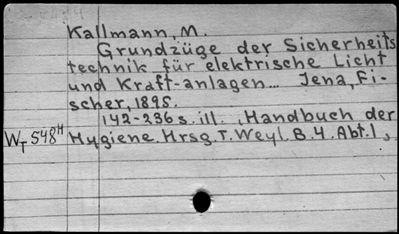 Kallmann, M.
Grundzüge der Sicherheits
technik für elektrische Licht
und Kraft-anlagen... Jena, Fi-
scher, 1895.
142-236 s. ill. , Handbuch der
WT 548H Hygiene. Hrsg. T. Weyl. B. 4. Abt. 1,